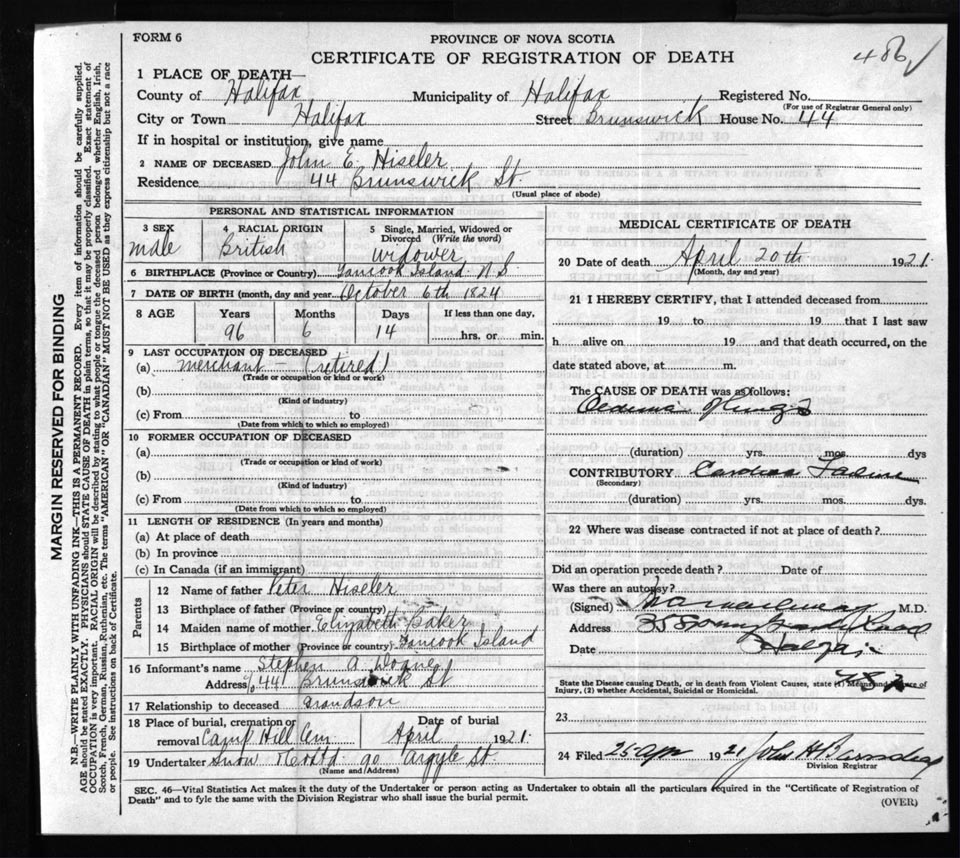 FORM 6
PROVINCE OF NOVA SCOTIA
CERTIFICATE OF REGISTRATION OF DEATH
486
1 PLACE OF DEATH—
County of Halifax Municipality of Halifax Registered No.
(For use of Registrar General only)
City or Town Halifax Street Brunswick House No. 44
If in hospital or institution, give name
2 NAME OF DECEASED John E. Hiseler
Residence 44 Brunswick St.
(Usual place of abode)
PERSONAL AND STATISTICAL INFORMATION
3 SEX male
4 RACIAL ORIGIN British
5 Single, Married, Widowed or Divorced (Write the word) Widower
6 BIRTHPLACE (Province or Country) Tancook Island N.S.
7 DATE OF BIRTH (month, day and year) October 6th 1824
8 AGE Years Months Days If less than one day,
96 6 14 hrs. or min.
9 LAST OCCUPATION OF DECEASED
(a) Merchant (retired)
(Trade or occupation or kind or work)
(b)
(Kind of industry)
(c) From to
(Date from which to which so employed)
10 FORMER OCCUPATION OF DECEASED
(a)
(Trade or occupation or kind or work)
(b)
(Kind of industry)
(c) From to
(Date from which to which so employed)
11 LENGTH OF RESIDENCE (In years and months)
(a) At place of death
(b) In province
(c) In Canada (if an immigrant)
Parents
12 Name of father Peter Hiseler
13 Birthplace of father (Province or country)
14 Maiden name of mother Elizabeth Baker
15 Birthplace of mother (Province or country) Tancook Island
16 Informant's name Stephen A. Doane
Address c/o 44 Brunswick St
17 Relationship to deceased Grandson
18 Place of burial, cremation or Date of burial
removal Camp Hill Cem April 1921.
19 Undertaker Snow & Co Ltd. 90 Argyle St.
(Name and Address)
MEDICAL CERTIFICATE OF DEATH
20 Date of death April 20th 1921.
(Month, day and year)
21 I HEREBY CERTIFY, that I attended deceased from
19 to 19 that I last saw
h alive on 19 and that death occurred, on the
date stated above, at m.
The CAUSE OF DEATH was as follows:
Oedema Lungs
(duration) yrs. mos. dys
CONTRIBUTORY Cardiac Failure
(Secondary)
(duration) yrs. mos. dys.
22 Where was disease contracted if not at place of death?
Did an operation precede death? Date of
Was there an autopsy?
(Signed) M.D.
Address Road
Date Halifax
State the Disease causing Death, or in death from Violent Causes, state (1) Means and Nature of
Injury, (2) whether Accidental, Suicidal or Homicidal.
23
24 Filed 25 Apr 1921 John H
Division Registrar
SEC. 46—Vital Statistics Act makes it the duty of the Undertaker or person acting as Undertaker to obtain all the particulars required in the "Certificate of Registration of
Death" and to fyle the same with the Division Registrar who shall issue the burial permit.
(OVER)
MARGIN RESERVED FOR BINDING
N.B.—WRITE PLAINLY WITH UNFADING INK—THIS IS A PERMANENT RECORD. Every item of information should be carefully supplied.
AGE should be stated EXACTLY. PHYSICIANS should STATE CAUSE OF DEATH in plain terms, so that it may be properly classified. Exact statement of
OCCUPATION is very important. RACIAL ORIGIN will be described by stating to what people or tongue the deceased person belonged whether English, Irish,
Scotch, French, German, Russian, Ruthenian, etc. The terms "AMERICAN" OR "CANADIAN" MUST NOT BE USED as they express citizenship but not a race
or people. See instructions on back of Certificate.